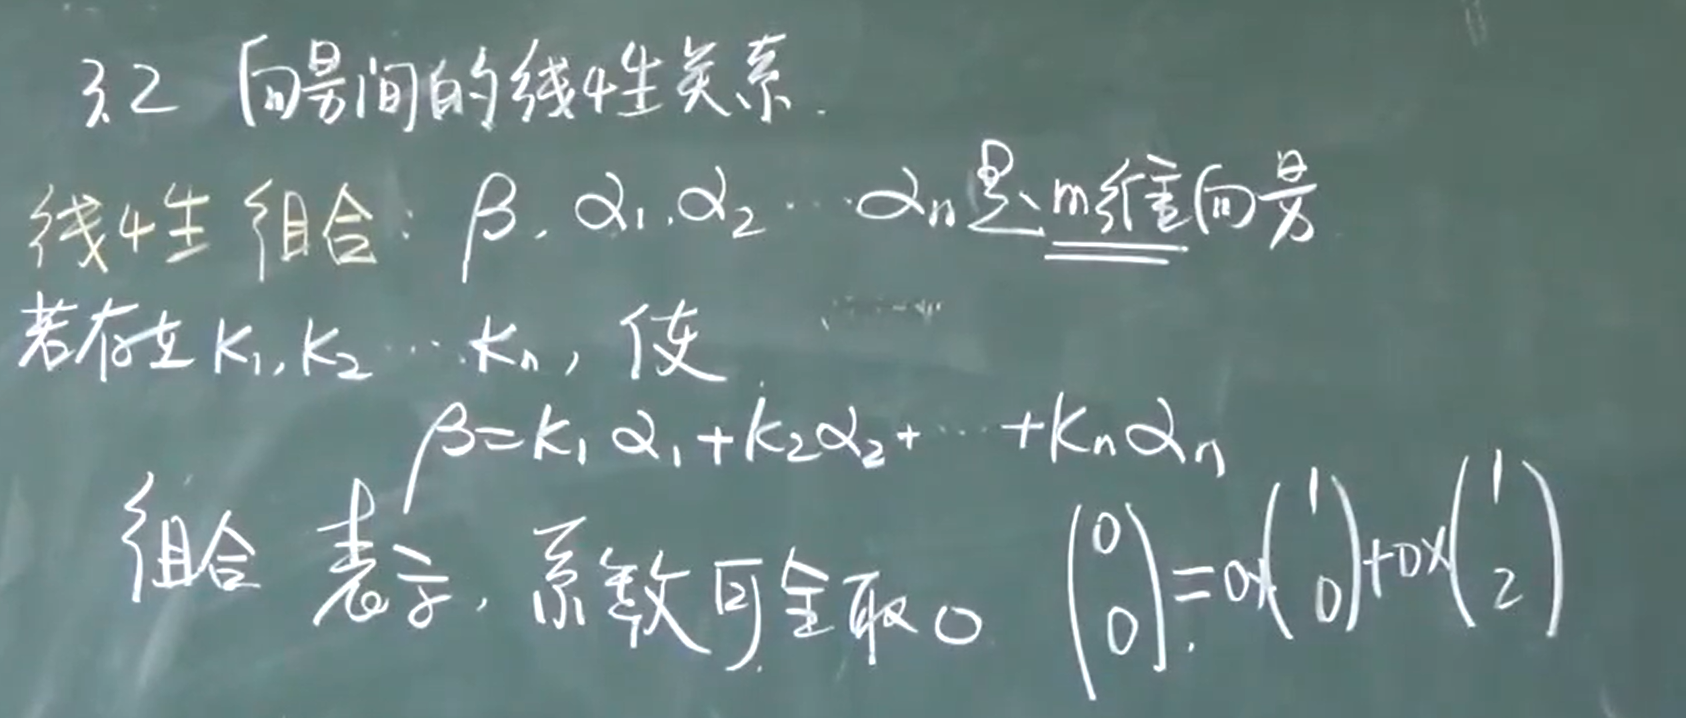 3.2 向量间的线性关系.
线性组合: β, α₁, α₂ ⋯ αₙ是m维向量
若存在 K₁, K₂ ⋯ Kₙ, 使
β=K₁α₁+K₂α₂+⋯+Kₙαₙ
组合 表示, 系数可全取0 (0 0)=0×(1 0)+0×(1 2)